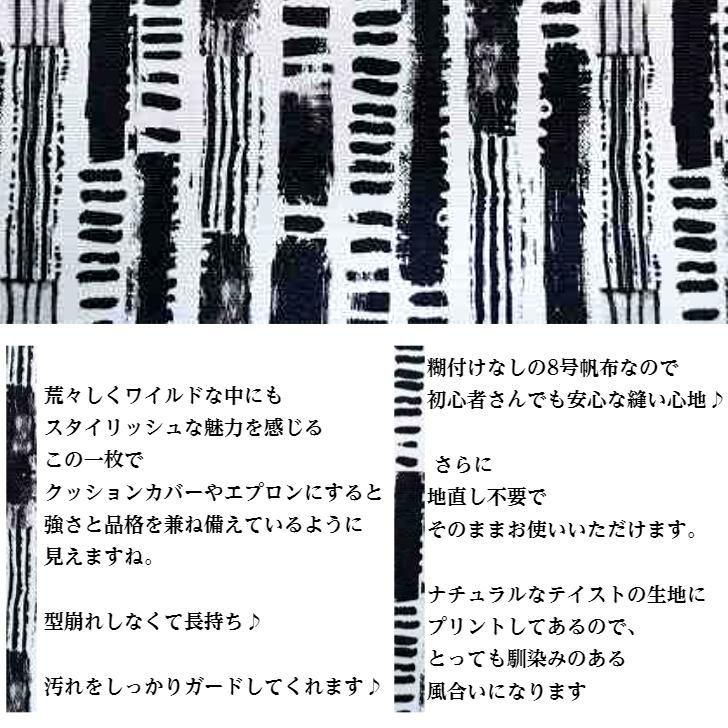 荒々しくワイルドな中にも
スタイリッシュな魅力を感じる
この一枚で
クッションカバーやエプロンにすると
強さと品格を兼ね備えているように
見えますね。
型崩れしなくて長持ち♪
汚れをしっかりガードしてくれます♪
糊付けなしの8号帆布なので
初心者さんでも安心な縫い心地♪
さらに
地直し不要で
そのままお使いいただけます。
ナチュラルなテイストの生地に
プリントしてあるので、
とっても馴染みのある
風合いになります